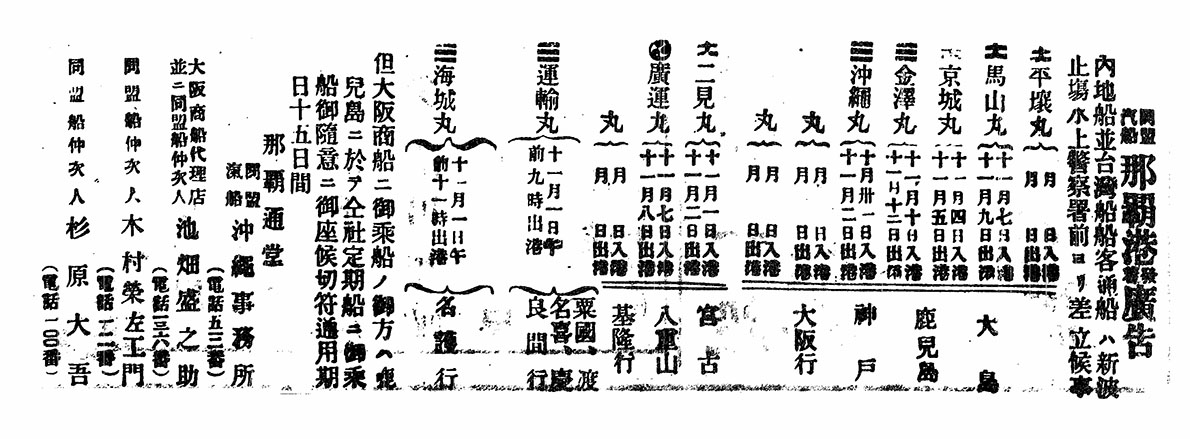 同盟汽船 那覇港發着廣告
内地船並台灣船船客通船ハ新波
止場水上警察署前ヨリ差立候事
平壤丸 月 日入港
月 日出港
馬山丸 十一月七日入港
十一月九日出港
大島
京城丸 十一月四日入港
十一月五日出港
金澤丸 十一月十日入港
十一月十二日出港
鹿兒島
沖繩丸 十月卅一日入港
十一月二日出港
神戸
丸 月 日入港
月 日出港
丸 月 日入港
月 日出港
大阪行
二見丸 十一月一日入港
十一月二日出港
宮古
廣運丸 十一月七日入港
十一月八日出港
八重山
丸 月 日入港
月 日出港
基隆行
運輸丸 十一月一日午
前九時出港
粟國、渡
名喜、慶
良間行
海城丸 十一月一日午
前十一時出港
名護行
但大阪商船ニ御乘船ノ御方ハ鹿
兒島ニ於テ仝社定期船ニ御乘
船御隨意ニ御座候切符通用期
日十五日間
那覇通堂
同盟汽船 沖繩事務所
(電話五三番)
大阪商船代理店
並ニ同盟船仲次人 池畑盛之助
(電話三六番)
同盟船仲次人 木村榮左工門
(電話一二番)
同盟船仲次人 杉原大吾
(電話一〇〇番)